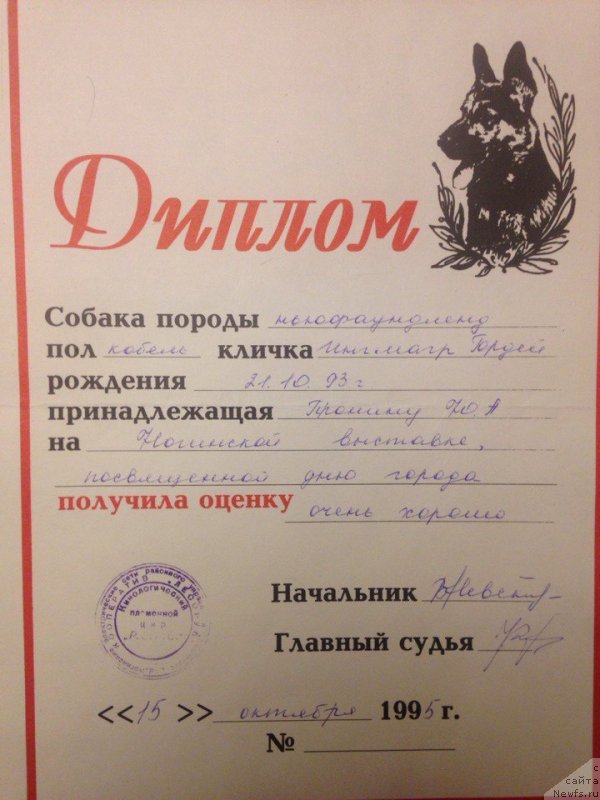 Диплом
Собака породы ньюфаундленд
пол кобель кличка Ингмагр Гордей
рождения 21.10.93 г
принадлежащая Пронину Ю.А
на Ногинской выставке,
посвященной дню города
получила оценку очень хорошо
КООПЕРАТИВ
Кинологический
племенной
Начальник
Главный судья
<<15>> октября 1995 г.
№
с
сайта
Newfs.ru